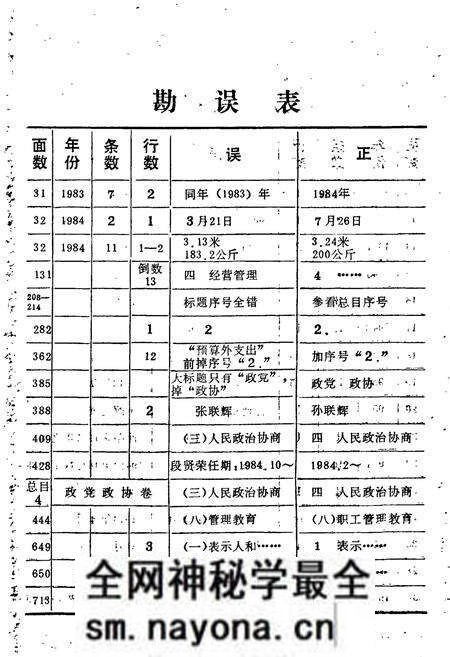 勘误表
面数 年份 条数 行数 误 正
31 1983 7 2 同年（1983）年 1984年
32 1984 2 1 3月21日 7月26日
32 1984 11 1—2 3.13米 183.2公斤 3.24米 200公斤
131 倒数13 四 经营管理 4 ……
208—214 标题序号全错 参看总目序号
282 1 2 2.
362 12 “预算外支出”前掉序号“2.” 加序号“2.”
385 大标题只有“政党”，掉“政协” 政党 政协
388 2 张联辉 孙联辉
409 （三）人民政治协商 四 人民政治协商
428 段贤荣任期：1984.10～ 1984.2～
总目4 政党政协卷 （三）人民政治协商 四 人民政治协商
444 （八）管理教育 （八）职工管理教育
649 3 （一）表示人和…… 1 表示……
650
713
全网神秘学最全
sm.nayona.cn